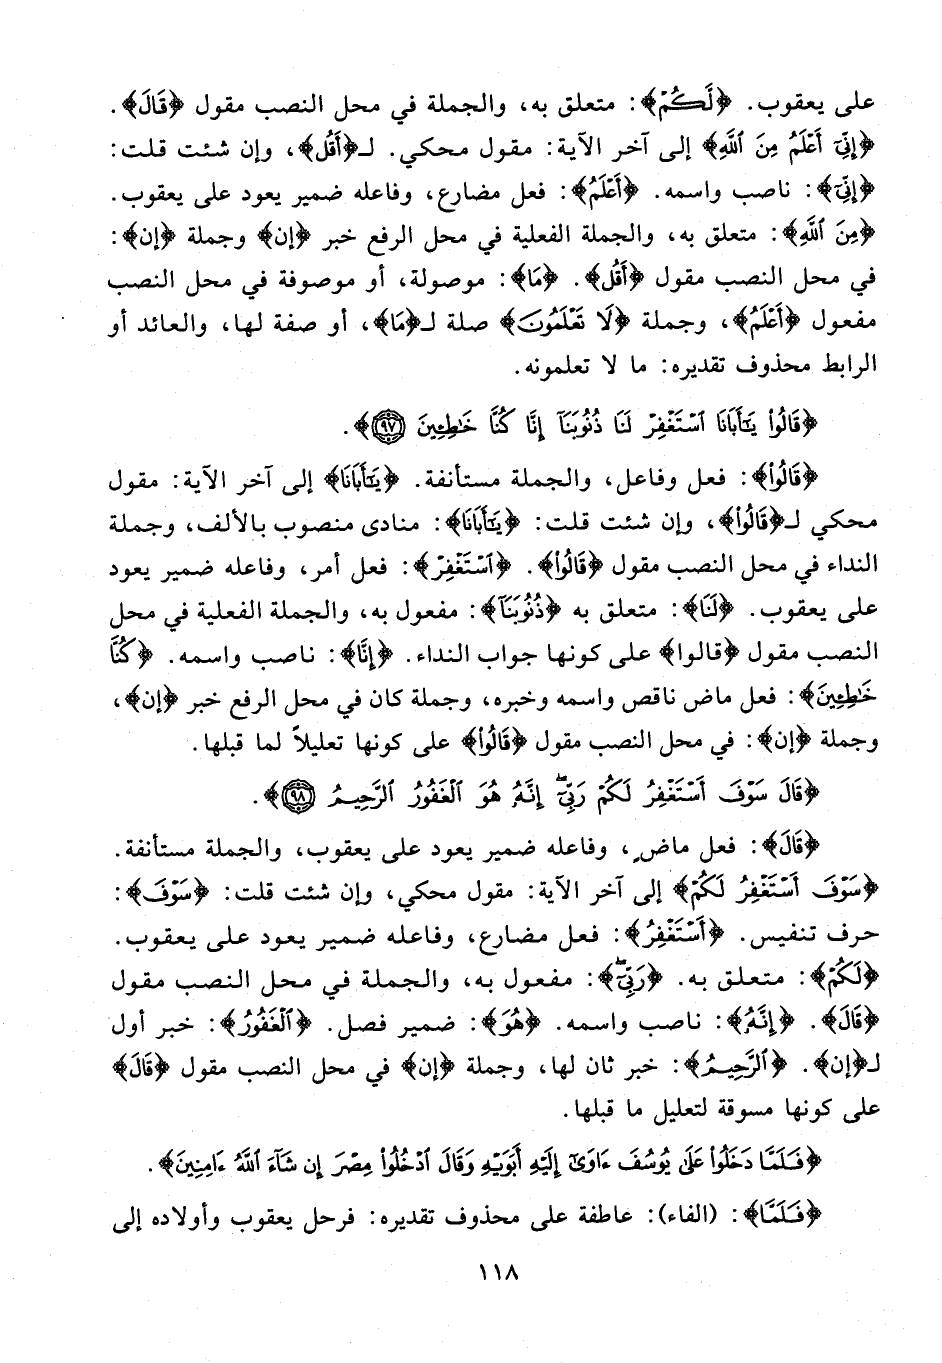 على يعقوب. ﴿لَّكُمْ﴾: متعلق به، والجملة في محل النصب مقول ﴿قَالَ﴾.
﴿إِنِّيٓ أَعْلَمُ مِنَ ٱللَّهِ﴾ إلى آخر الآية: مقول محكي. لـ﴿أَقُل﴾، وإن شئت قلت:
﴿إِنِّيٓ﴾: ناصب واسمه. ﴿أَعْلَمُ﴾: فعل مضارع، وفاعله ضمير يعود على يعقوب.
﴿مِنَ ٱللَّهِ﴾: متعلق به، والجملة الفعلية في محل الرفع خبر ﴿إن﴾ وجملة ﴿إن﴾:
في محل النصب مقول ﴿أَقُل﴾. ﴿مَا﴾: موصولة، أو موصوفة في محل النصب
مفعول ﴿أَعْلَمُ﴾، وجملة ﴿لَا تَعْلَمُونَ﴾ صلة لـ﴿مَا﴾، أو صفة لها، والعائد أو
الرابط محذوف تقديره: ما لا تعلمونه.
﴿قَالُوا۟ يَـٰٓأَبَانَا ٱسْتَغْفِرْ لَنَا ذُنُوبَنَآ إِنَّا كُنَّا خَـٰطِـِٔينَ ٩٧﴾.
﴿قَالُوا۟﴾: فعل وفاعل، والجملة مستأنفة. ﴿يَـٰٓأَبَانَا﴾ إلى آخر الآية: مقول
محكي لـ﴿قَالُوا۟﴾، وإن شئت قلت: ﴿يَـٰٓأَبَانَا﴾: منادى منصوب بالألف، وجملة
النداء في محل النصب مقول ﴿قَالُوا۟﴾. ﴿ٱسْتَغْفِرْ﴾: فعل أمر، وفاعله ضمير يعود
على يعقوب. ﴿لَنَا﴾: متعلق به ﴿ذُنُوبَنَآ﴾: مفعول به، والجملة الفعلية في محل
النصب مقول ﴿قالوا﴾ على كونها جواب النداء. ﴿إِنَّا﴾: ناصب واسمه. ﴿كُنَّا
خَـٰطِـِٔينَ﴾: فعل ماض ناقص واسمه وخبره، وجملة كان في محل الرفع خبر ﴿إن﴾،
وجملة ﴿إن﴾: في محل النصب مقول ﴿قَالُوا۟﴾ على كونها تعليلاً لما قبلها.
﴿قَالَ سَوْفَ أَسْتَغْفِرُ لَكُمْ رَبِّىٓ ۖ إِنَّهُۥ هُوَ ٱلْغَفُورُ ٱلرَّحِيمُ ٩٨﴾.
﴿قَالَ﴾: فعل ماضٍ، وفاعله ضمير يعود على يعقوب، والجملة مستأنفة.
﴿سَوْفَ أَسْتَغْفِرُ لَكُمْ﴾ إلى آخر الآية: مقول محكي، وإن شئت قلت: ﴿سَوْفَ﴾:
حرف تنفيس. ﴿أَسْتَغْفِرُ﴾: فعل مضارع، وفاعله ضمير يعود على يعقوب.
﴿لَكُمْ﴾: متعلق به. ﴿رَبِّىٓ ۖ﴾: مفعول به، والجملة في محل النصب مقول
﴿قَالَ﴾. ﴿إِنَّهُۥ﴾: ناصب واسمه. ﴿هُوَ﴾: ضمير فصل. ﴿ٱلْغَفُورُ﴾: خبر أول
لـ﴿إن﴾. ﴿ٱلرَّحِيمُ﴾: خبر ثان لها، وجملة ﴿إن﴾ في محل النصب مقول ﴿قَالَ﴾
على كونها مسوقة لتعليل ما قبلها.
﴿فَلَمَّا دَخَلُوا۟ عَلَىٰ يُوسُفَ ءَاوَىٰٓ إِلَيْهِ أَبَوَيْهِ وَقَالَ ٱدْخُلُوا۟ مِصْرَ إِن شَآءَ ٱللَّهُ ءَامِنِينَ﴾.
﴿فَلَمَّا﴾: (الفاء): عاطفة على محذوف تقديره: فرحل يعقوب وأولاده إلى
١١٨